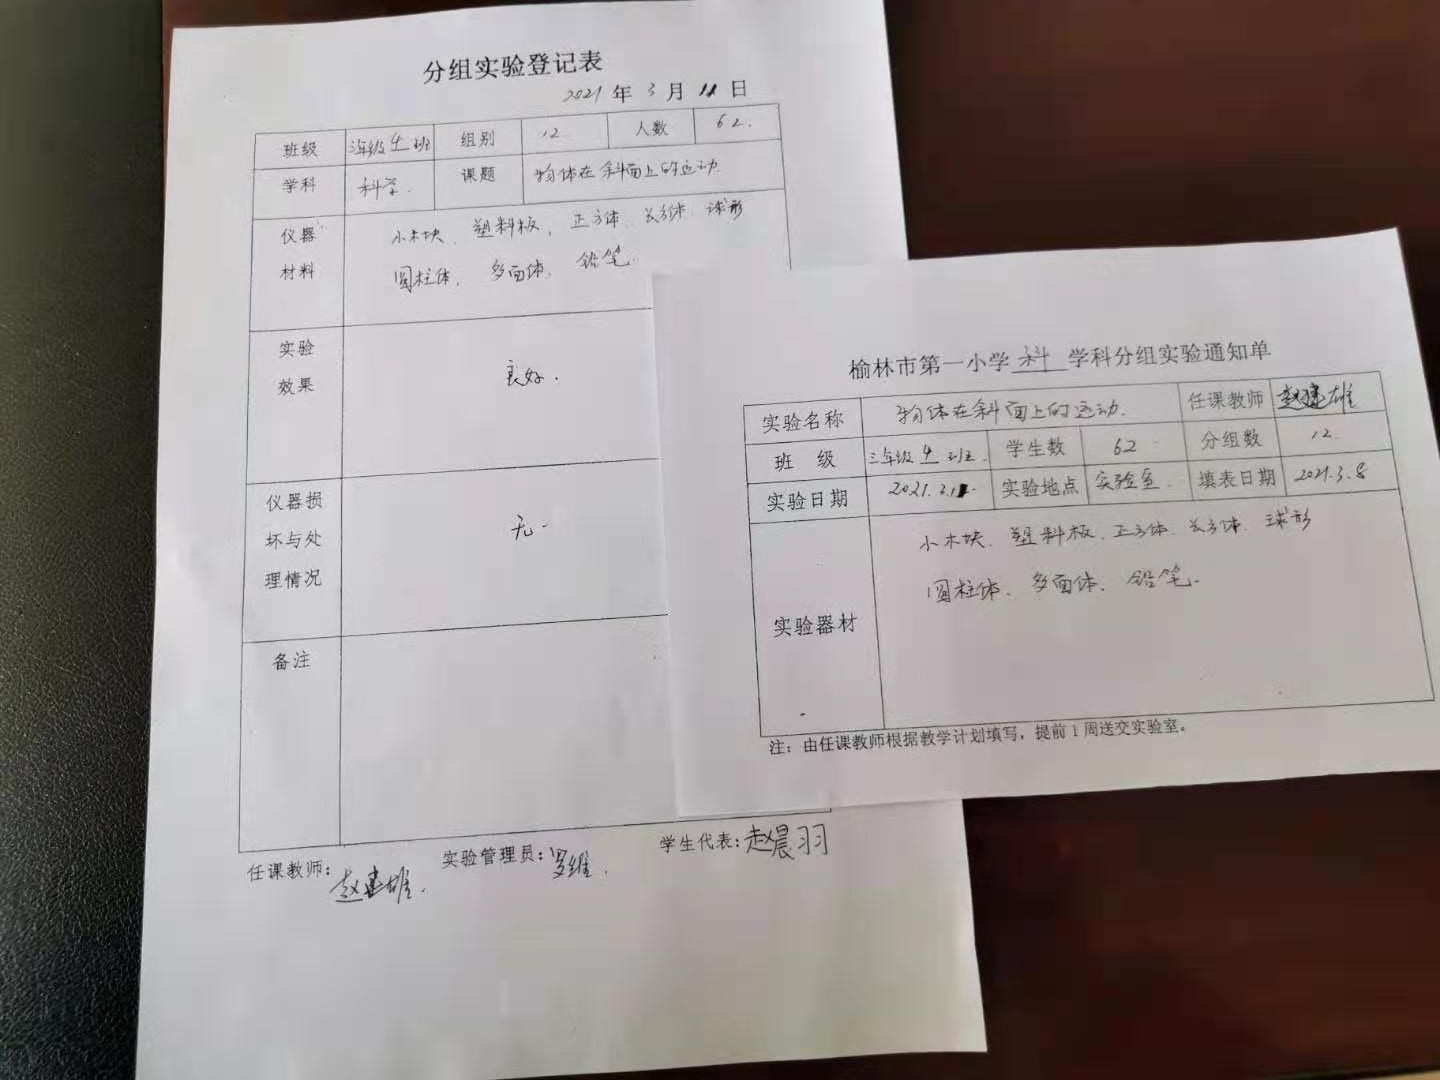 分组实验登记表
2021 年 3 月 11 日
班级 三年级 4 班 组别 12 人数 62.
学科 科学. 课题 物体在斜面上的运动.
仪器 小木块、塑料板、正方体、长方体、球形
材料 圆柱体、多面体、铅笔.
实验
效果 良好.
仪器损
坏与处 无.
理情况
备注
任课教师: 赵建雄. 实验管理员: 罗维. 学生代表: 赵晨羽
榆林市第一小学 科 学科分组实验通知单
实验名称 物体在斜面上的运动. 任课教师 赵建雄
班 级 三年级 4 班. 学生数 62 分组数 12.
实验日期 2021.3.11. 实验地点 实验室. 填表日期 2021.3.8
小木块、塑料板、正方体、长方体、球形
圆柱体、多面体、铅笔.
实验器材
注：由任课教师根据教学计划填写，提前 1 周送交实验室。